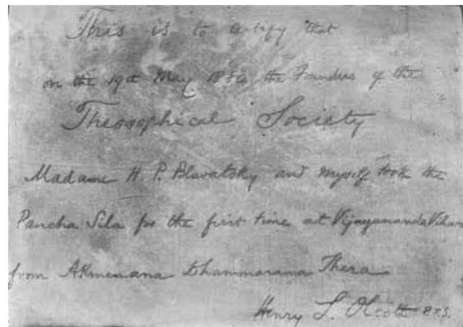 This is to certify that
on the 19th May 1880 the Founders of the
Theosophical Society
Madame H. P. Blavatsky and myself took the
Pancha Sila for the first time at Vijayananda Vihara
from Akmemana Dhammarama Thera
Henry S. Olcott